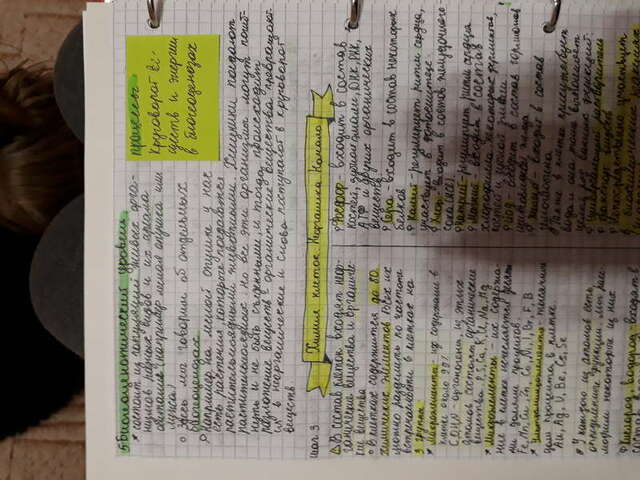 5. Биогеоценотический уровень
* состоит из популяций живых орга-
низмов разных видов и их ареала
обитания (например лесная опушка или
луга)
○ Здесь мы говорим об отдельных
биогеоценозах
○ Например на лесной опушке у нас
есть растения, которые поедаются
растительноядными животными. Хищники поедают
растительноядных, но все эти организмы могут погиб-
нуть и не быть съеденными, и тогда происходит
разложение веществ - органические вещества превращают-
ся в неорганические и снова поступают в круговорот
веществ.
процессы
круговорот ве-
ществ и энергии
в биогеоценозах
Химия клеток. Неорганика. Начало
В состав клеток входят неор-
ганические вещества и органичес-
кие вещества
○ В клетках содержится до 80
химических элементов. Всех их
можно разделить по частоте
встречаемости в клетках на
3 группы
* Макроэлементы - их содержание в
клетке около 99%
COHN - органогены, из этих
атомов состоят органические
вещества. P, S, Ca, K, Cl, Na, Mg
* Микроэлементы - их содержа-
ние в клетке исчисляется десяты-
ми долями процентов.
Fe, Mn, Cu, Zn, Co, Ni, I, Br, F, B
* Ультрамикроэлементы - тысячные
доли процента в клетке
Au, Ag, U, Be, Cs, Se
* У каждого из атомов есть
определённые функции. Мы рас-
смотрим некоторые из них
Кислород, водород - входят в
Фосфор - входит в состав
костей, зубной эмали, ДНК, РНК,
АТФ и других органических
веществ.
Сера - входит в состав некоторых
белков
Калий - регулирует ритм сердца,
участвует в фотосинтезе.
Хлор - входит в состав желудочного
сока (HCl).
Натрий - регулирует ритм сердца
Магний - входит в состав
хлорофилла, некоторых ферментов,
костей и зубной эмали
Йод - входит в состав гормонов
щитовидной железы
Железо - входит в состав
гемоглобина
Также в клетке присутствует
вода и она тоже выполняет
целый ряд важных функций:
Универсальный растворитель
Транспорт веществ
Непосредственно участвует